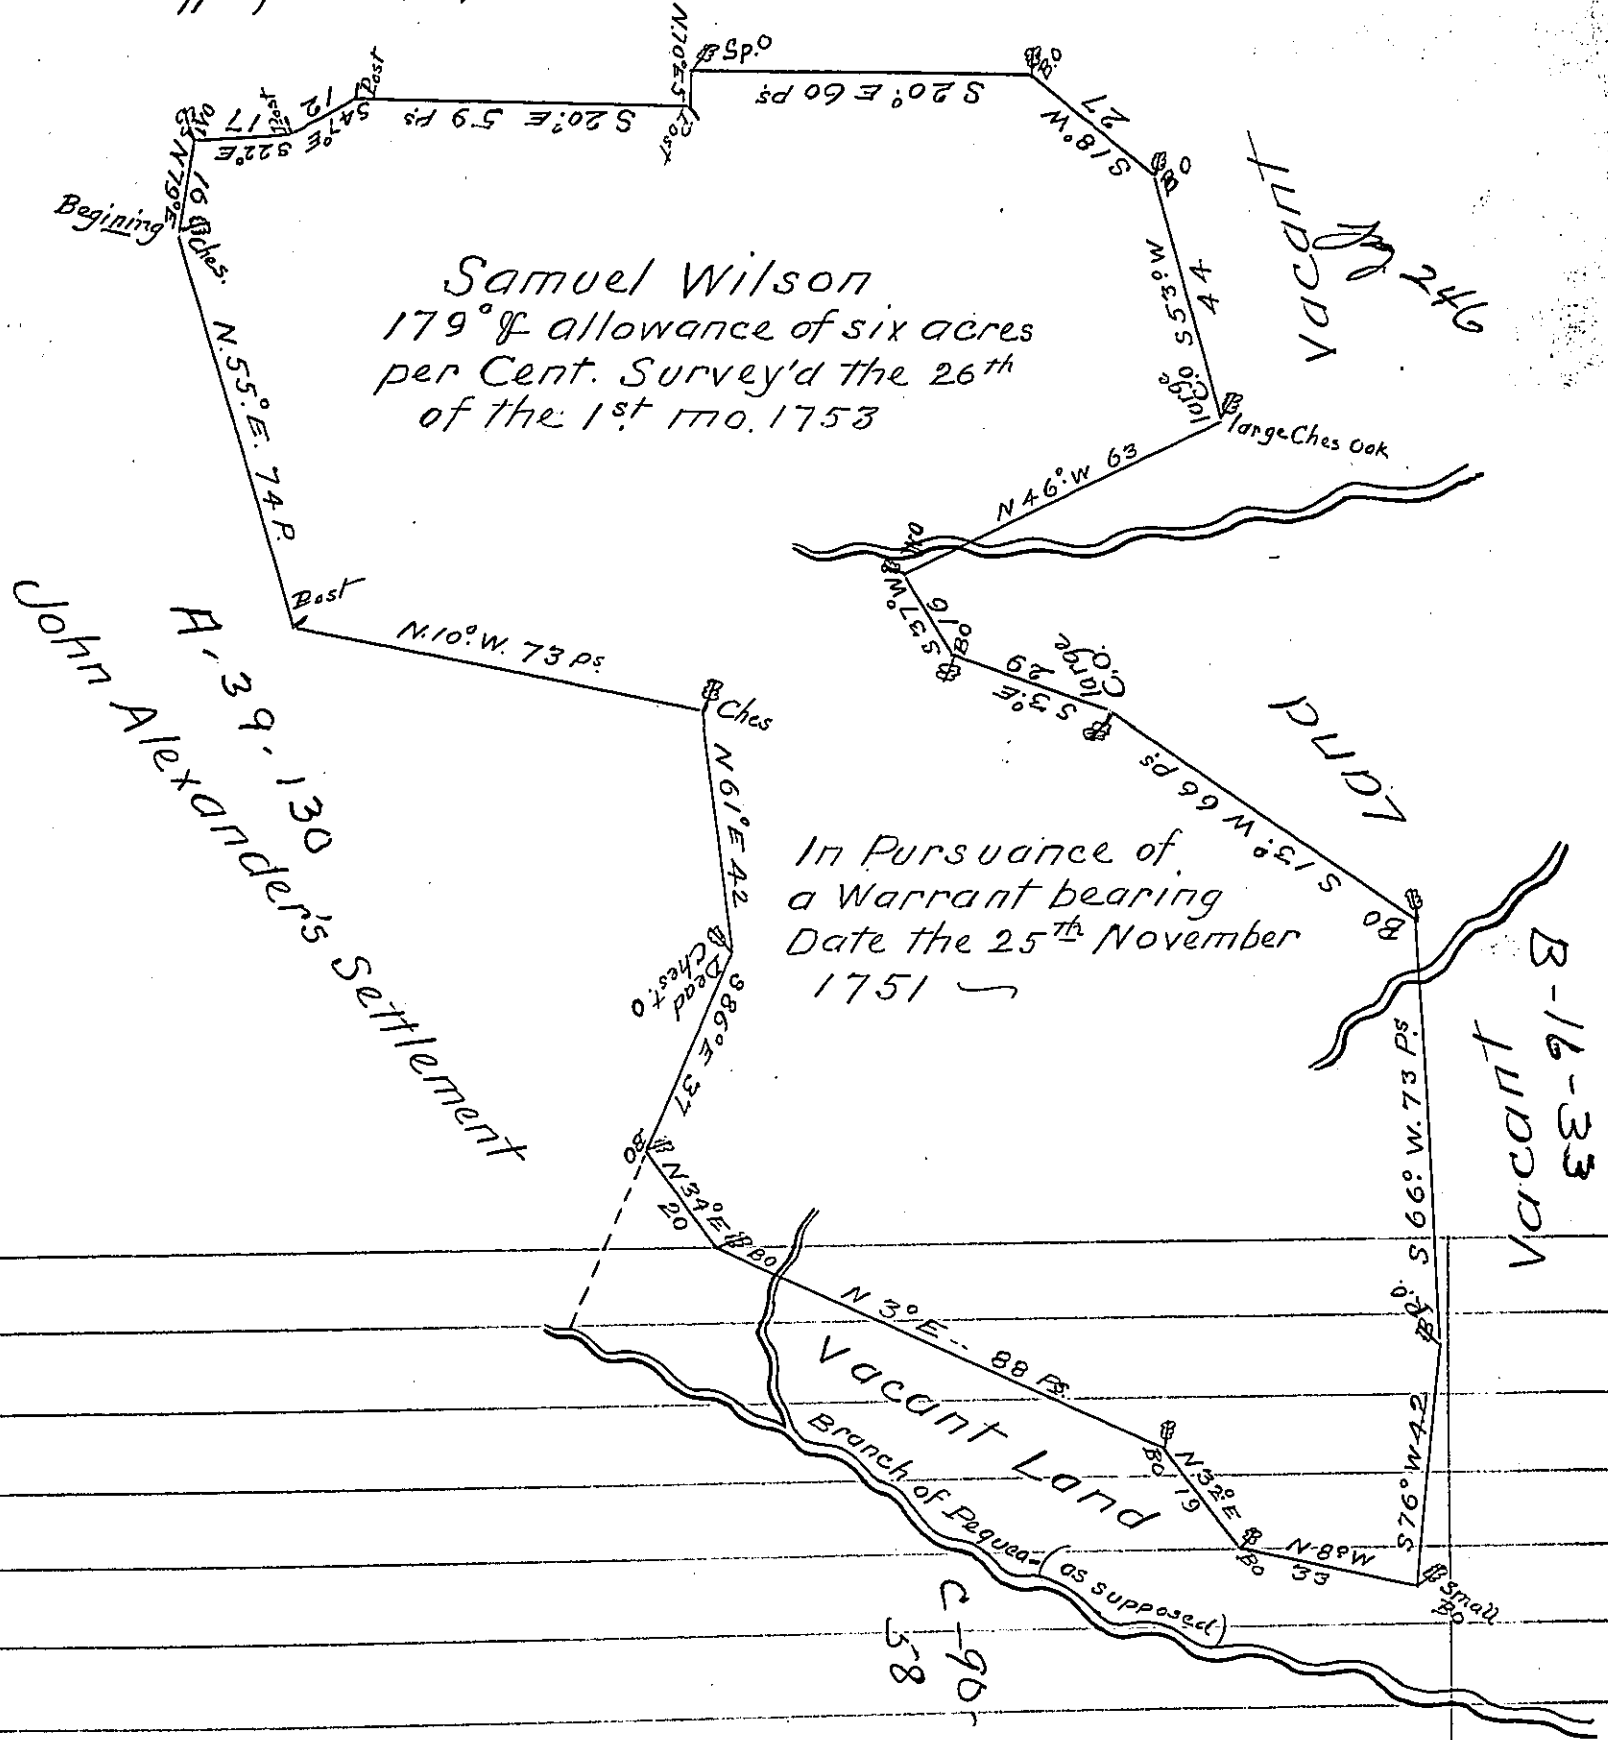 Samuel Wilson
179° & allowance of six acres
per Cent. Survey'd the 26th
of the 1st mo. 1753
In Pursuance of
a Warrant bearing
Date the 25th November
1751
Begining
Ches.
N79°E
16
S22°E
17
Post
S47°E
12
Post
S 20° E 59 Ps
Post
N.70°E 5
Sp.o
S 20° E 60 ps
B.O
S18°W
27
B.O
S 53° W
44
large
C.O
large Ches Oak
N 46° W 63
S 37° W
16
BO
S 3° E
29
large
C.O.
S 13° W 66 ps
BO
S 66° W. 73 Ps
S 76° W 42
Small
BO
N 8° W
33
BO
N 32° E
19
BO
N 3° E -- 88 Ps.
BO
N34°E
20
BO
S86°E 37
Dead
Chest.O
N61°E 42
Ches
N.10°.W. 73 ps.
Post
N.55°.E. 74 P.
Vacant
246
Land
Vacant
B-16-33
Vacant Land
Branch of Pequea (as supposed)
C-90
58
A, 39, 130
John Alexander's Settlement